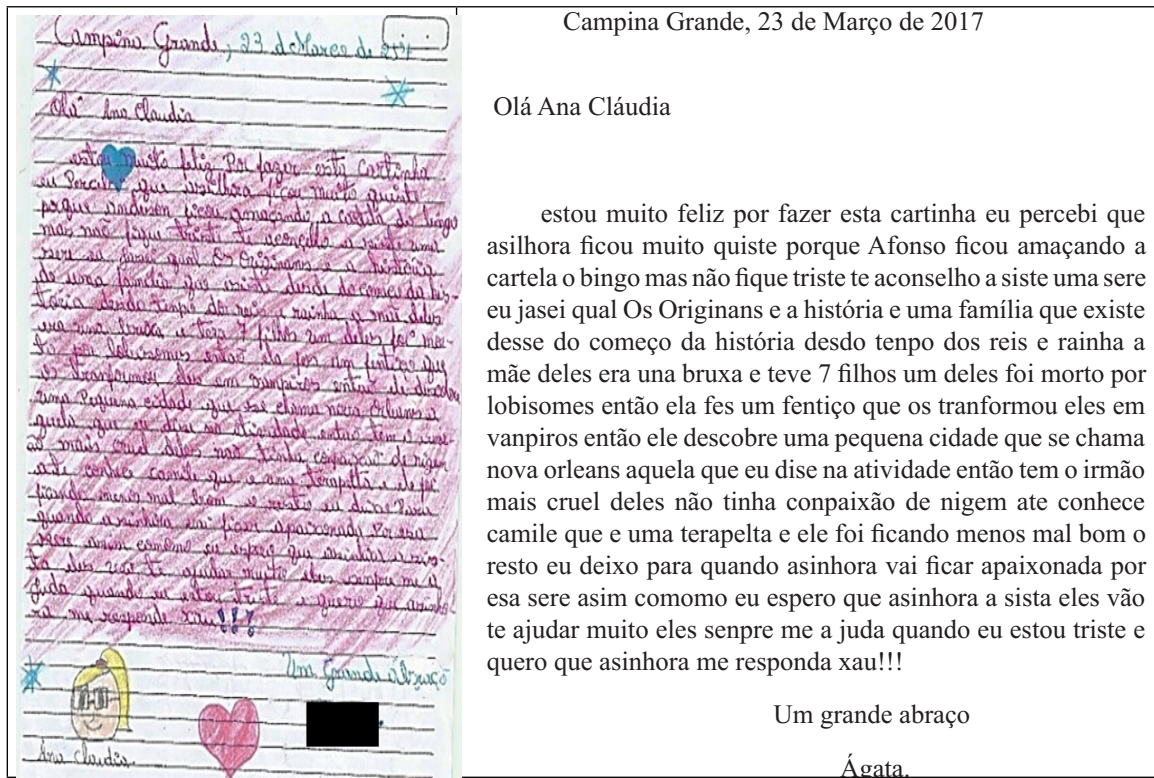 Campina Grande, 23 d Março de
Olá Ana Claudia
estou muito feliz Por fazer esta cartinha
eu Percebi que ficou muito quiste
porque ficou amaçando a cartela do bingo
mas não fique triste t a siste uma
sere eu jasei qual Os Originans e a história
e uma família que existe desde do começo da his-
toria desdo tenpo dos reis e rainha a mãe deles
era una bruxa e teve 7 filhos um deles foi mor-
to por lobisomes então ela fes um fentiço que
os tranformou eles em vanpiros então ele descobre
uma Pequena cidade que se chama nova Orleans a
quela que eu dise na atividade então tem o irmão
mais cruel deles não tinha conpaixão de nigem
ate conhece camile que e uma terapelta e ele foi
ficando menos mal bom o resto eu deixo Para
quando asinhora vai ficar apaixonada Por esa
sere asim comomo eu espero que asinhora a sis-
ta eles vão te ajudar muito eles senpre me a
juda quando eu estou triste e quero que asinho-
ra me responda xau!!!
Um Grande abraço
Ana Claudia
Campina Grande, 23 de Março de 2017
Olá Ana Cláudia
estou muito feliz por fazer esta cartinha eu percebi que
asilhora ficou muito quiste porque Afonso ficou amaçando a
cartela o bingo mas não fique triste te aconselho a siste uma sere
eu jasei qual Os Originans e a história e uma família que existe
desse do começo da história desdo tenpo dos reis e rainha a
mãe deles era una bruxa e teve 7 filhos um deles foi morto por
lobisomes então ela fes um fentiço que os tranformou eles em
vanpiros então ele descobre uma pequena cidade que se chama
nova orleans aquela que eu dise na atividade então tem o irmão
mais cruel deles não tinha conpaixão de nigem ate conhece
camile que e uma terapelta e ele foi ficando menos mal bom o
resto eu deixo para quando asinhora vai ficar apaixonada por
esa sere asim comomo eu espero que asinhora a sista eles vão
te ajudar muito eles senpre me a juda quando eu estou triste e
quero que asinhora me responda xau!!!
Um grande abraço
Ágata.